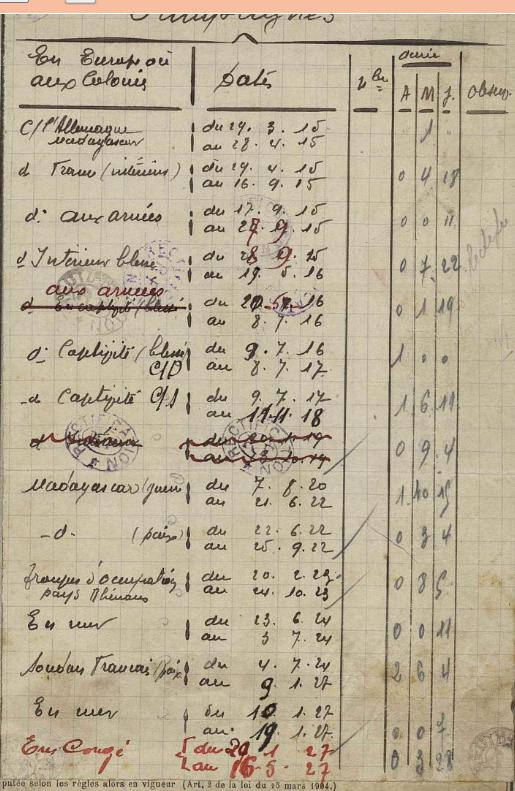 Campagnes
En Europe ou aux Colonies | Dates | durée
A M J. Observ.
C/ l'Allemagne Madagascar | du 29. 3. 15 au 28. 4. 15 | 1
d° France (intérieur) | du 29. 4. 15 au 16. 9. 15 | 0 4 18
d° aux armées | du 17. 9. 15 au 27. 9. 15 | 0 0 11
d° Intérieur blessé | du 28 9. 15 au 19. 5. 16 | 0 7 22
aux armées
d° En captivité (blessé) | du 20. 5. 16 au 8. 7. 16 | 0 1 19
d° Captivité (blessé) C/D | du 9. 7. 16 au 8. 7. 17 | 1 0 0
d° Captivité | du 9. 7. 17 au 11 11 18
d° Intérieur | 0 9 4
Madagascar (guerre) | du 7. 8. 20 au 21. 6. 22 | 1 10 15
d° (paix) | du 22. 6. 22 au 25. 9. 22 | 0 3 4
Troupes d'occupation pays Rhénans | du 20. 2. 23 au 24. 10. 23 | 0 8 5
En mer | du 23. 6. 24 au 3 7. 24 | 0 0 11
Soudan Français (paix) | du 4. 7. 24 au 9 1. 27 | 2 6 4
En mer | du 10 1. 27 au 19 1. 27 | 0 0
En Congé | du 20 1 27 au 16-5 27 | 0 3 28
RECTIFICATION
putée selon les règles alors en vigueur (Art. 2 de la loi du 15 mars 1904.)